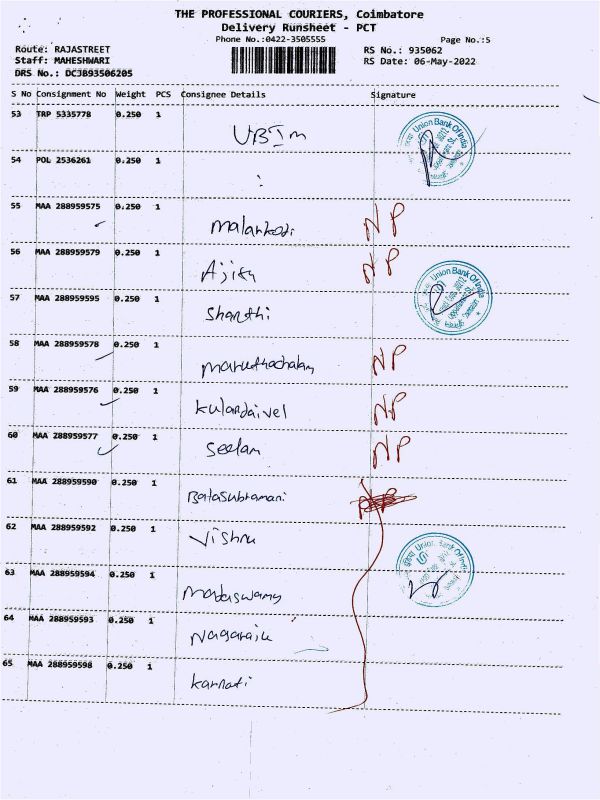 THE PROFESSIONAL COURIERS, Coimbatore
Delivery Runsheet - PCT
Phone No.:0422-3505555 Page No.:5
Route: RAJASTREET RS No.: 935062
Staff: MAHESHWARI RS Date: 06-May-2022
DRS No.: DCJB93506205
S No Consignment No Weight PCS Consignee Details Signature
53 TRP 5335778 0.250 1 UBIM Union Bank Of India
54 POL 2536261 0.250 1 :
55 MAA 288959575 0.250 1 Malarkodi NP
56 MAA 288959579 0.250 1 Ajith NP
57 MAA 288959595 0.250 1 Sharthi Union Bank Of India
58 MAA 288959578 0.250 1 Maruthachalam NP
59 MAA 288959576 0.250 1 Kulandaivel NP
60 MAA 288959577 0.250 1 Seelan NP
61 MAA 288959590 0.250 1 Balasubramani
62 MAA 288959592 0.250 1 Vishnu Union Bank Of India
63 MAA 288959594 0.250 1 Madaswamy
64 MAA 288959593 0.250 1 Nagaraju
65 MAA 288959598 0.250 1 Kannati